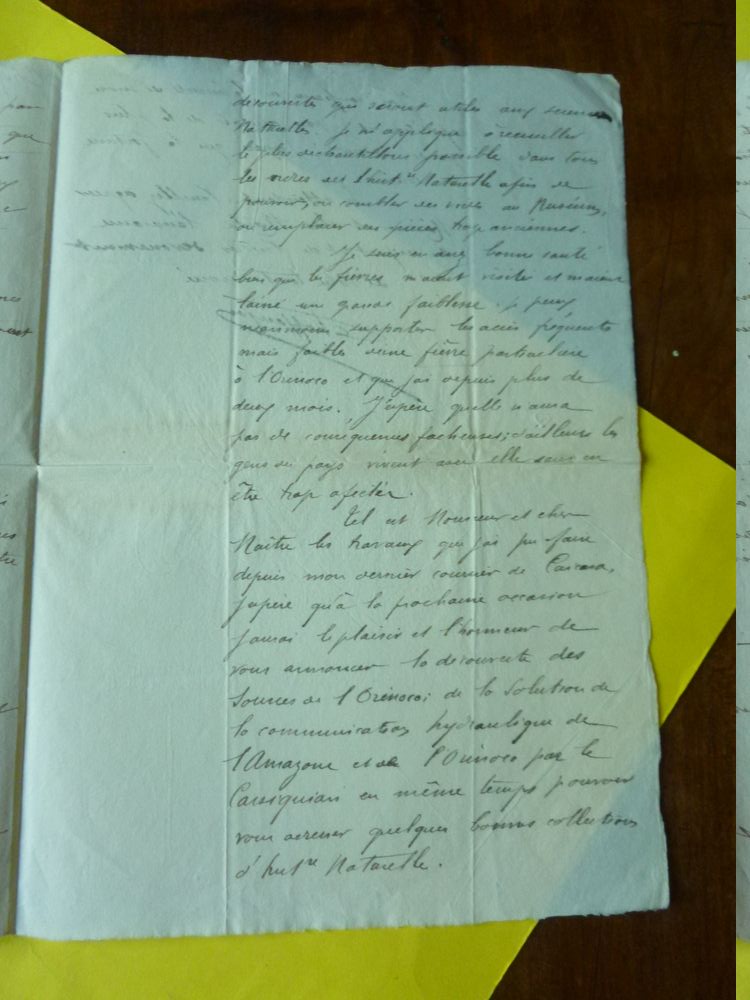 découvertes qui seront utiles aux sciences
Naturelles. Je m'applique à recueillir
le plus d'échantillons possible dans tous
les ordres de l'hist.re Naturelle afin de
pouvoir, ou combler des vides au Muséum,
ou remplacer des pièces trop anciennes.
Je suis en assez bonne santé
bien que les fièvres m'aient visité et m'aient
laissé une grande faiblesse. je peux
néanmoins supporter les accès fréquents
mais faibles d'une fièvre particulière
à l'Orénoco et que j'ai depuis plus de
deux mois. J'espère qu'elle n'aura
pas de conséquences facheuses; d'ailleurs les
gens du pays vivent avec elle sans en
être trop affectés.
Tel est Monsieur et cher
Maître les travaux que j'ai pu faire
depuis mon dernier courrier de Caicara,
j'espère qu'à la prochaine occasion
j'aurai le plaisir et l'honneur de
vous annoncer la découverte des
Sources de l'Orénoco; de la Solution de
la communication hydraulique de
l'Amazone et de l'Orénoco par le
Cassiquiari en même temps pouvoir
vous adresser quelques bonnes collections
d'hist.re Naturelle.